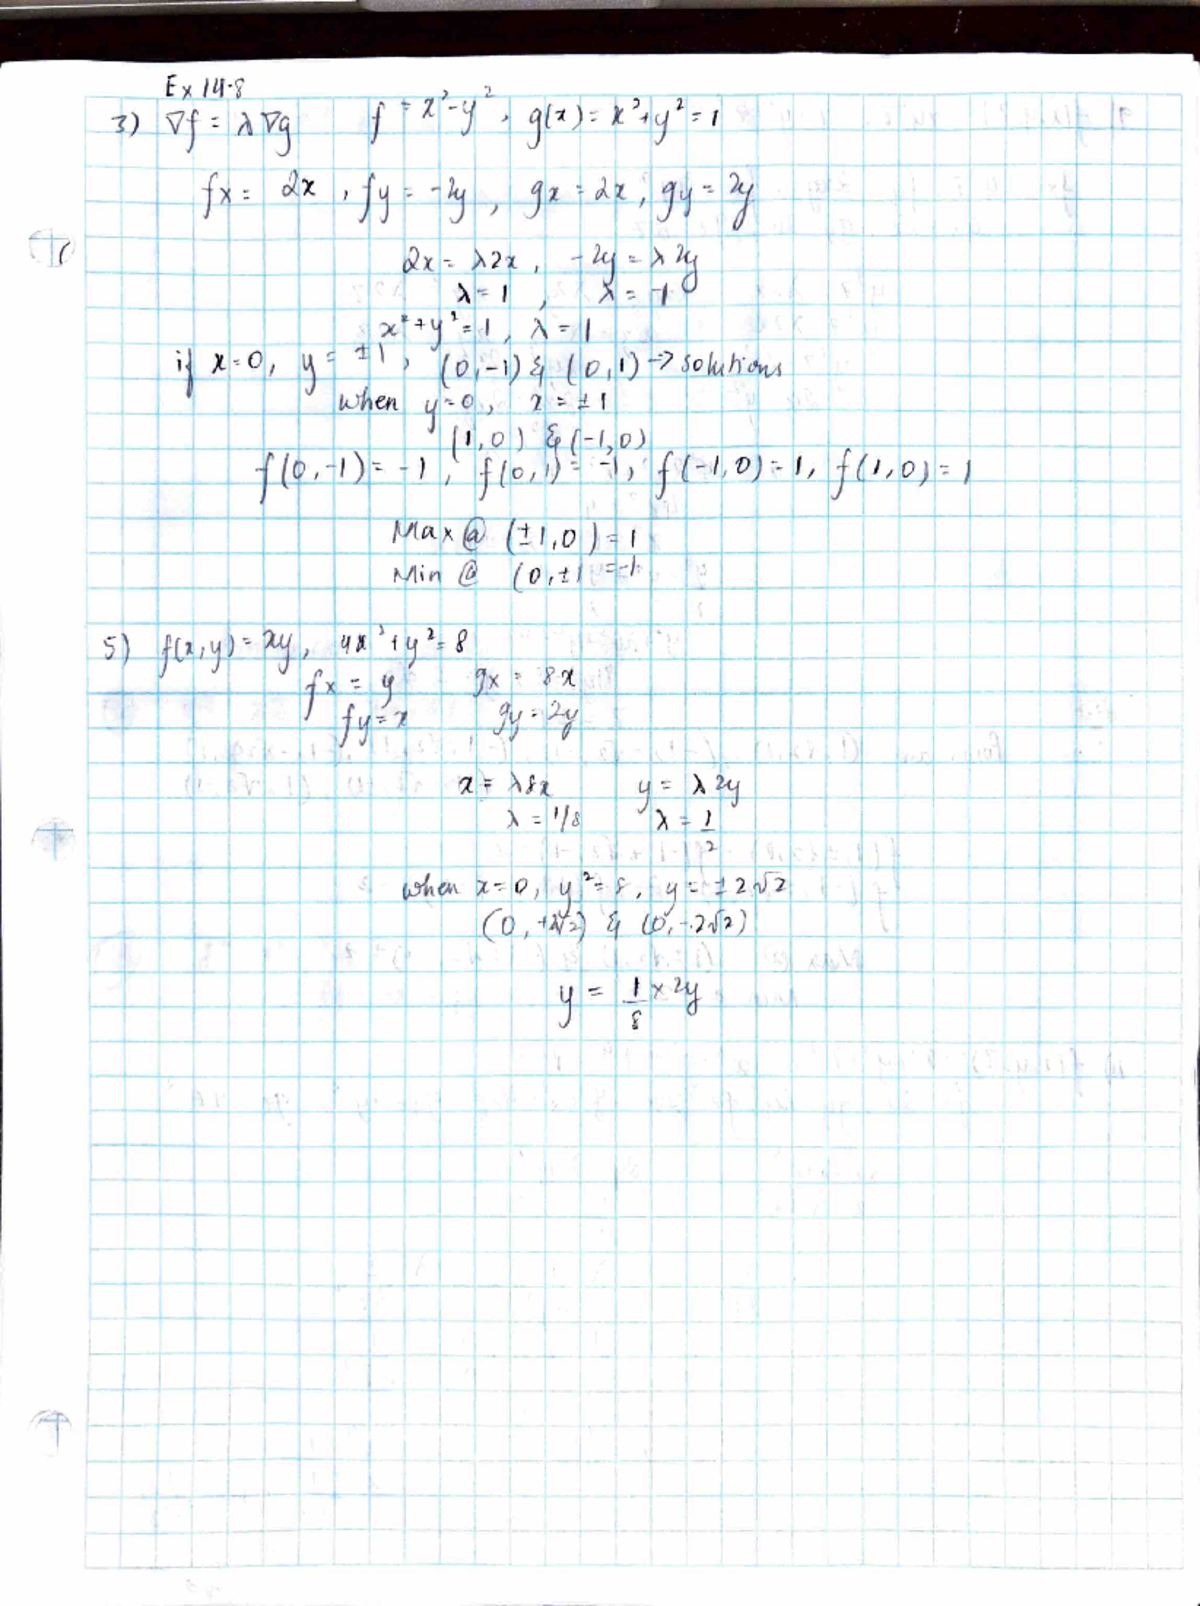 Ex 14.8
3) ∇f = λ∇g f = x² - y², g(x) = x² + y² = 1
fx = 2x, fy = -2y, gx = 2x, gy = 2y
2x = λ2x, -2y = λ2y
λ = 1, λ = -1
x² + y² = 1, λ = 1
if x=0, y = ±1, (0,-1) & (0,1) → solutions
when y=0, x = ±1
(1,0) & (-1,0)
f(0,-1) = -1, f(0,1) = -1, f(-1,0) = 1, f(1,0) = 1
Max @ (±1,0) = 1
Min @ (0,±1 = -1
5) f(x,y) = xy, 4x² + y² = 8
fx = y gx = 8x
fy = x gy = 2y
x = λ8x y = λ2y
λ = 1/8 λ = 1/2
when x=0, y² = 8, y = ±2√2
(0, +2√2) & (0, -2√2)
y = 1/8 × 2y